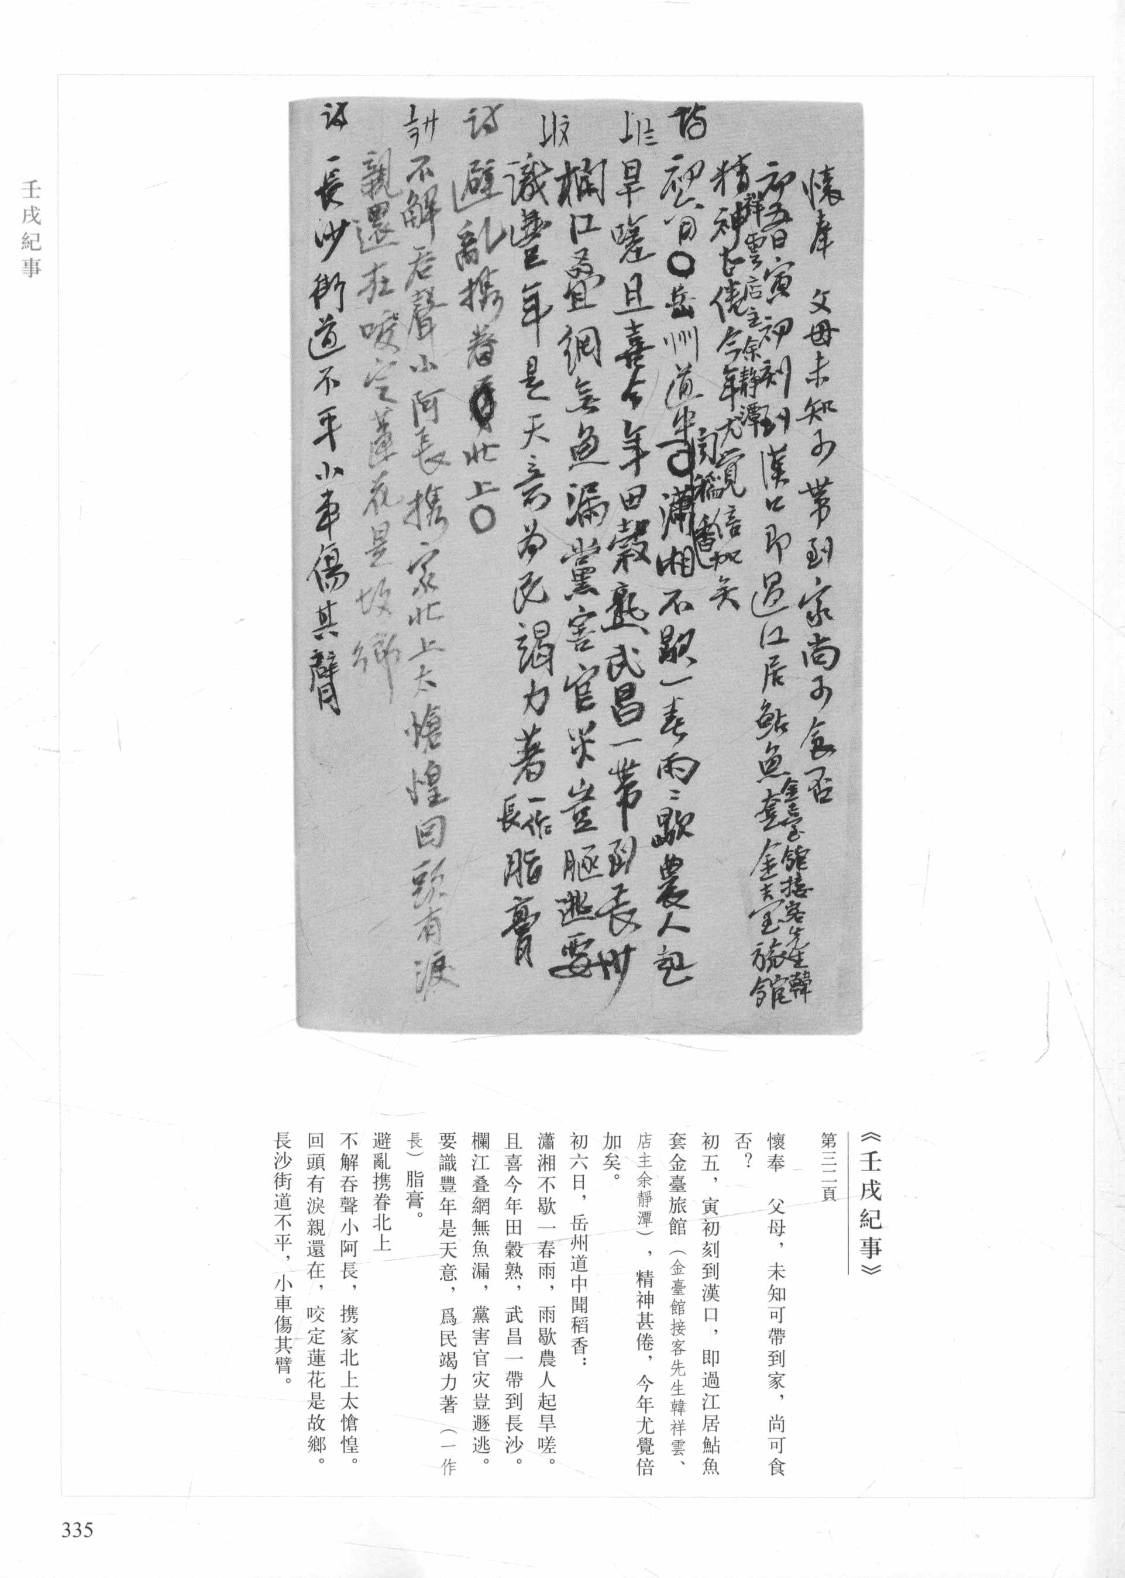 壬戌紀事
懷奉　父母未知可帶到家尚可食否
初五日寅初刻到漢口即過江居鮎魚套金臺旅館
金臺館接客先生韓
祥雲店主余靜潭
精神甚倦今年尤覺倍加矣
詩 初六日岳州道中聞稻香 瀟湘不歇一春雨〻歇農人起
旱嗟且喜今年田穀熟武昌一帶到長沙
欄江叠網無魚漏黨害官災豈遯逃要
識豐年是天意為民竭力著一作長脂膏
詩 避亂携眷北上
不解吞聲小阿長携家北上太愴惶回頭有淚
親還在咬定蓮花是故鄉
長沙街道不平小車傷其臂
《壬戌紀事》
第三二頁
懷奉　父母，未知可帶到家，尚可食
否？
初五，寅初刻到漢口，即過江居鮎魚
套金臺旅館（金臺館接客先生韓祥雲、
店主余靜潭），精神甚倦，今年尤覺倍
加矣。
初六日，岳州道中聞稻香：
瀟湘不歇一春雨，雨歇農人起旱嗟。
且喜今年田穀熟，武昌一帶到長沙。
欄江叠網無魚漏，黨害官灾豈遯逃。
要識豐年是天意，爲民竭力著（一作
長）脂膏。
避亂携眷北上
不解吞聲小阿長，携家北上太愴惶。
回頭有淚親還在，咬定蓮花是故鄉。
長沙街道不平，小車傷其臂。
335